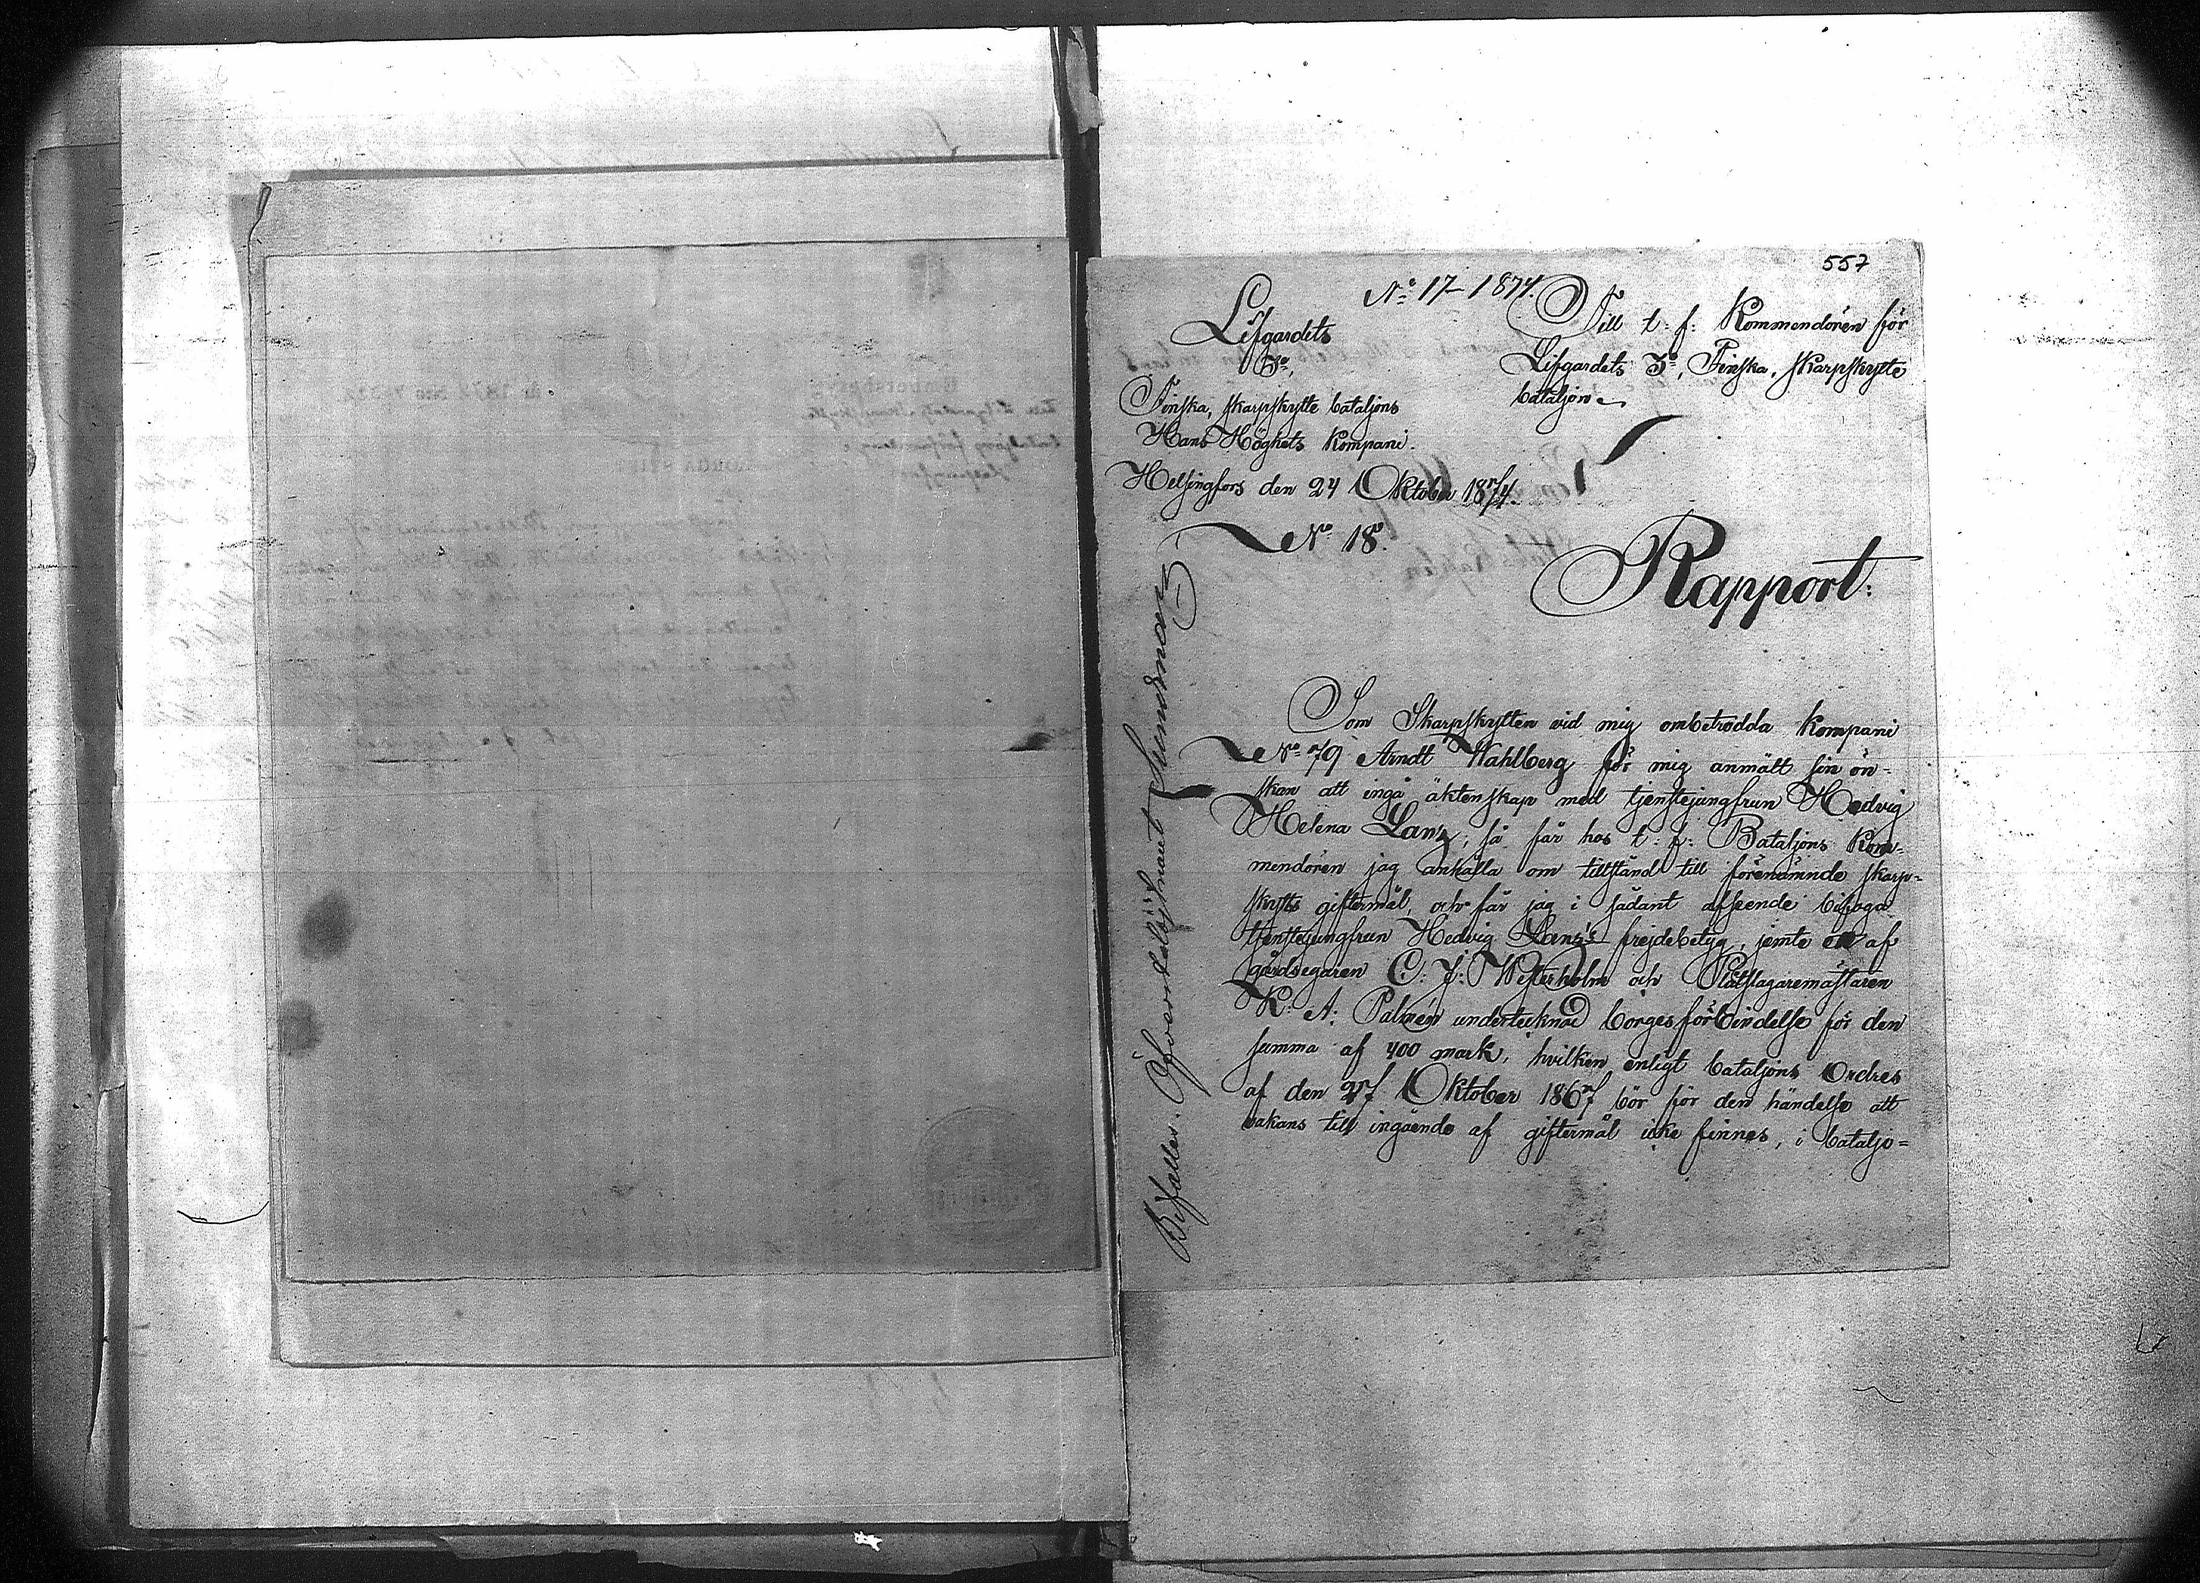 557
No 17 1874.
Lifgardets
3e,
Finska, skarpskytte bataljons
Hans Höghets Kompani.
Helsingfors den 24 Oktober 1874.
No 18.
Till t. f. Kommendören för
Lifgardets 3e, Finska, skarpskytte
bataljon
Rapport:
Som Skarpskytten vid mig ombetrodda kompani
No 79 Arndt Wahlberg för mig anmält sin ön-
skan att ingå äktenskap med tjenstejungfrun Hedvig
Helena Lanz; så får hos t. f. Bataljons Kom-
mendören jag anhålla om tillstånd till förenämnde skarp-
skytts giftermål, och får jag i sådant afseende bifoga
tjenstejungfrun Hedvig Lanz's frejdebetyg, jemte en af
gårdsegaren C. J. Westerholm och Plåtslagaremästaren
K. A. Palmén undertecknad borgesförbindelse för den
summa af 400 mark, hvilken enligt bataljons Ordres
af den 27 Oktober 1867 bör för den händelse att
vakans till ingående af giftermål icke finnes, i bataljo=
Bifalles. Öfverstelöjtnant Sundman